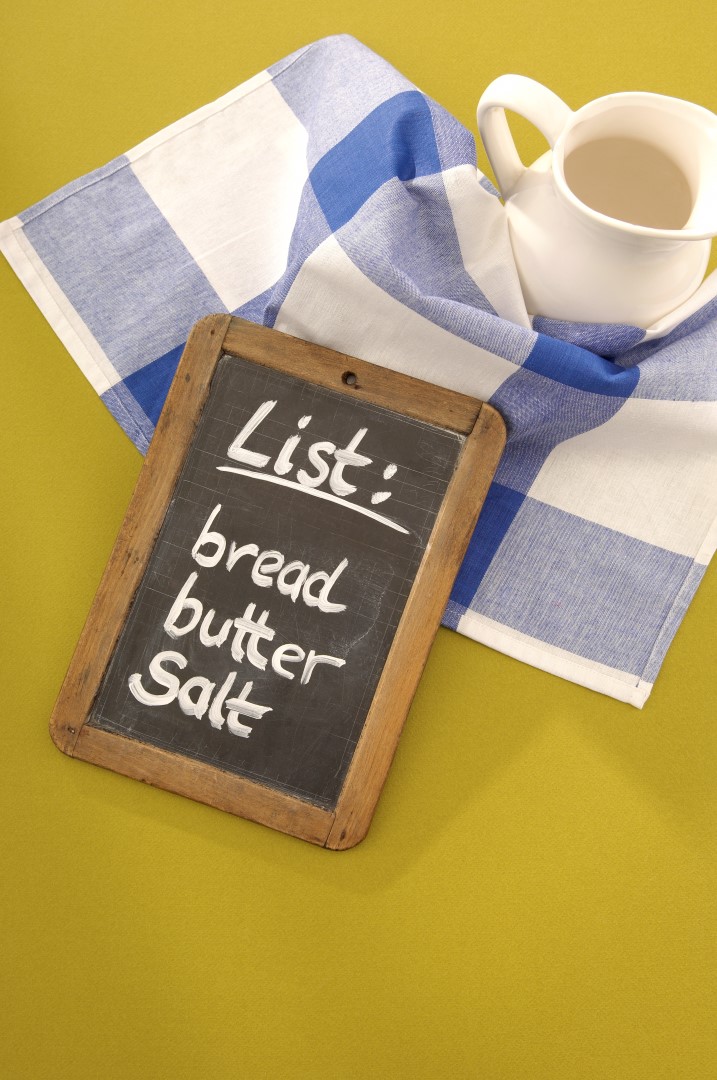 List:
bread
butter
Salt